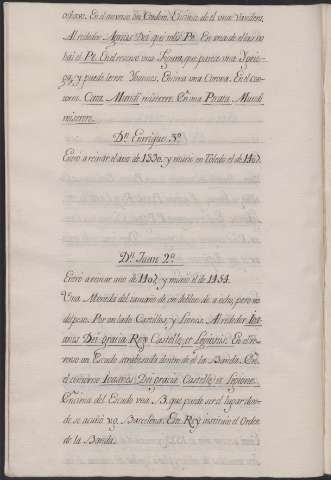 octavo. En el anverso un Cordero. Encima de él una Vandera.
Al rededor Agnus Dei qui tolis Pe. En una de ellas no
hai el Pe. En el reverso una figura, que parece una Ypsi-
y puede leerse Encima una Corona. En el con-
torno. Cata Mundi miserere. En una Pecata Mundi
miserere.
Dn. Enrique 3º.
Entró a reinar el año de 1390. y murio en Toledo el de 1407.
Dn. Juan 2º.
Entró a reinar año de 1407. y murió el de 1454.
Una Moneda del tamaño de un doblon de a ocho, pero no
del peso. Por un lado Castillos, y Leones. Al rededor Ioa-
anus Dei gracia Rey Castelle, et Legionis. En el re-
verso un Escudo atrabesada dentro de él la Banda. En
el contorno Ioannes Dei gracia Castelle, et Legione.
Encima del Escudo una B. que puede ser el lugar don-
de se acuñó vg. Barcelona. Este Rey instituió el Orden
de la Banda.